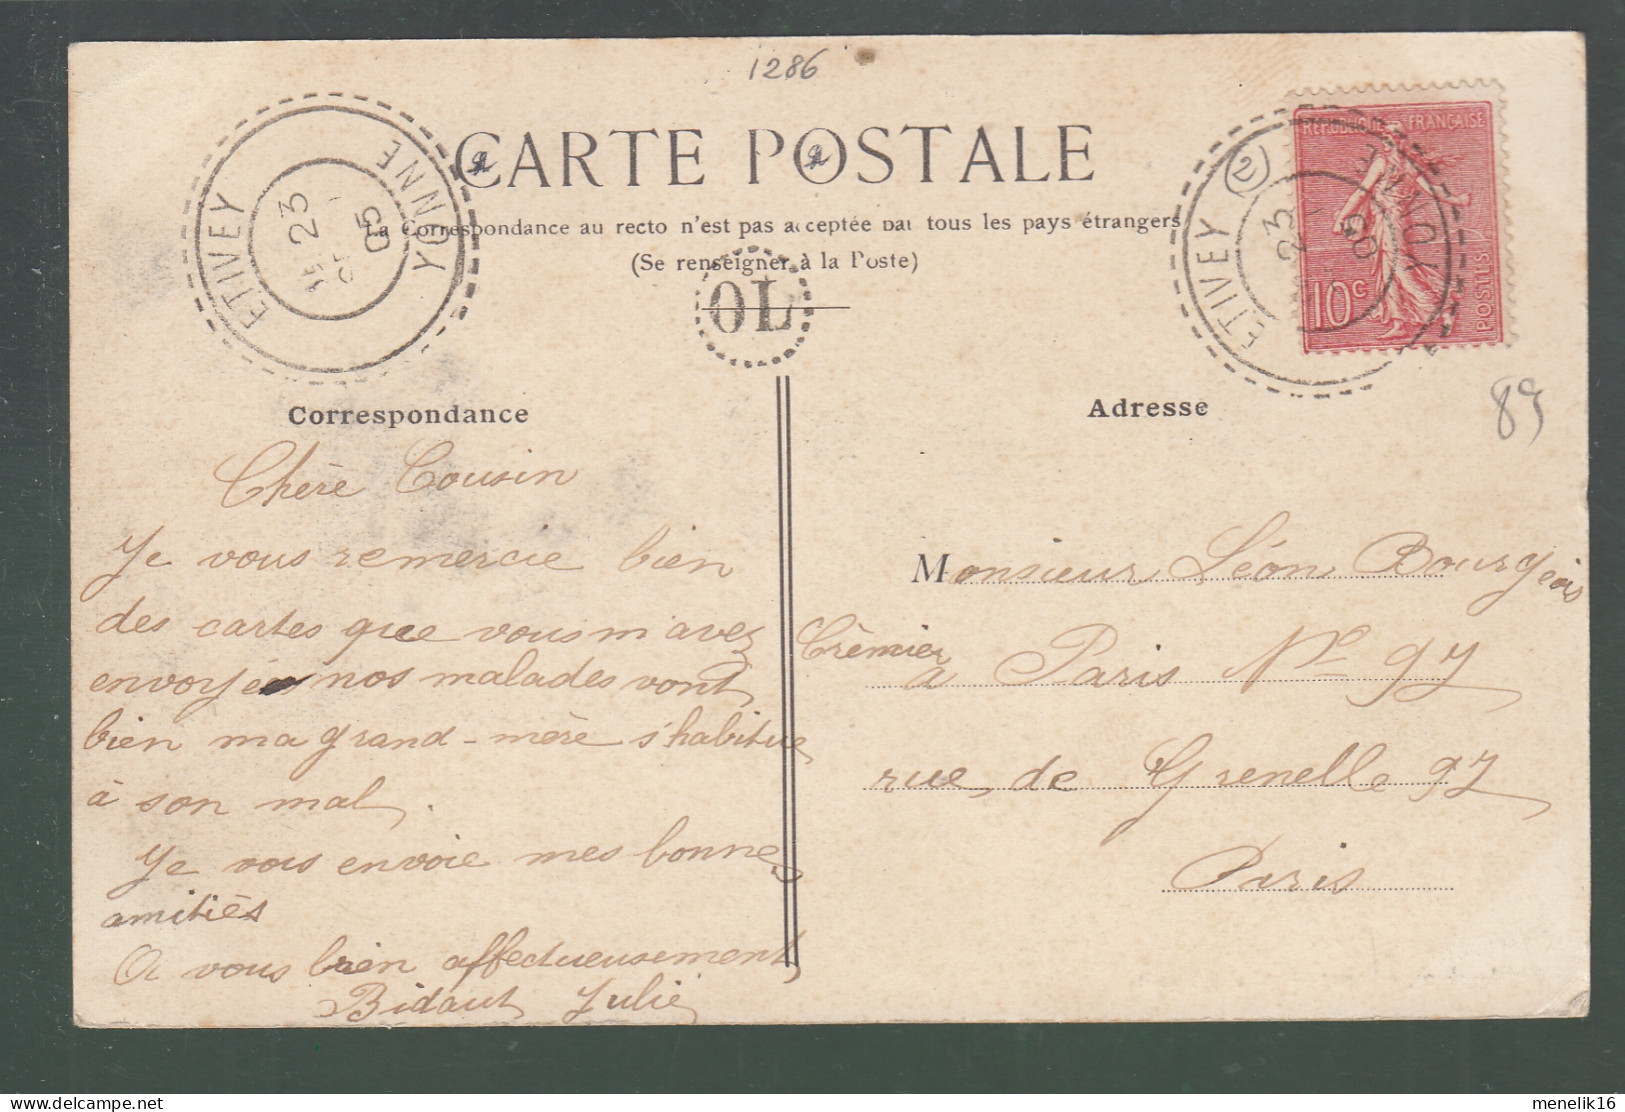 1286
CARTE POSTALE
La Correspondance au recto n'est pas acceptée par tous les pays étrangers
(Se renseigner à la Poste)
ETIVEY YONNE
23
05
OL
ETIVEY YONNE
2
23
05
REPUBLIQUE FRANÇAISE
10 c
POSTES
89
Correspondance
Adresse
Chère Cousin
Je vous remercie bien
des cartes que vous m'avez
envoyée nos malades vont
bien ma grand-mère s'habitue
à son mal.
Je vous envoie mes bonnes
amitiés
A vous bien affectueusement
Bidaut Julie
Monsieur Léon Bourgeois
Crèmier à Paris No 97
rue de Grenelle 97
Paris
menelik16